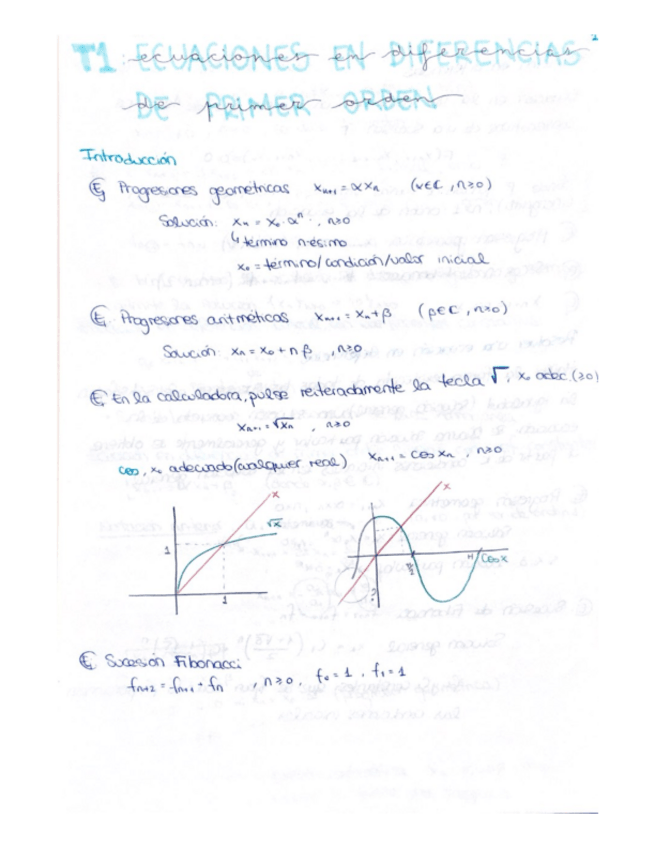 T1: ECUACIONES EN DIFERENCIAS
ecuaciones en diferencias
DE PRIMER ORDEN
de primer orden
Introducción
Ej Progresiones geométricas x_{n+1} = αx_n (α∈ℂ, n≥0)
Solución: x_n = x_0·α^n, n≥0
↳ término n-ésimo
x_0 = término/condición/valor inicial
Ej Progresiones aritméticas x_{n+1} = x_n + β (β∈ℂ, n≥0)
Solución: x_n = x_0 + nβ, n≥0
Ej En la calculadora, pulse reiteradamente la tecla √, x_0 adec. (≥0)
x_{n+1} = √x_n, n≥0
cos, x_0 adecuado (cualquier real) x_{n+1} = cos x_n, n≥0
x
√x
1
1
x
π/2
cos x
Ej Sucesión Fibonacci
f_{n+2} = f_{n+1} + f_n, n≥0, f_0 = 1, f_1 = 1